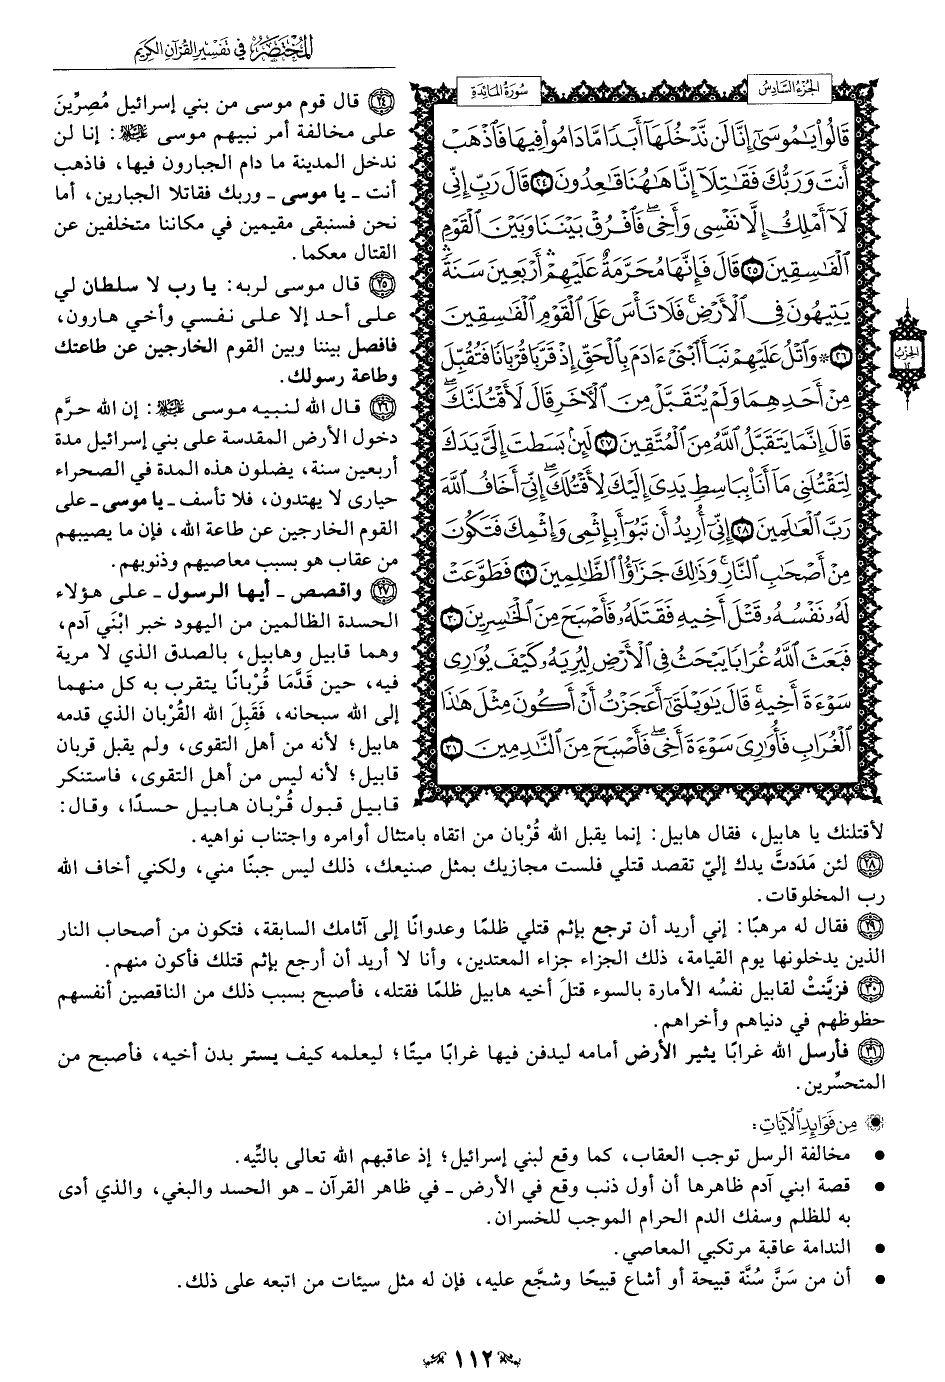 المختصر في تفسير القرآن الكريم
الجزء السادس
سورة المائدة
قَالُواْ يَٰمُوسَىٰٓ إِنَّا لَن نَّدْخُلَهَآ أَبَدًا مَّا دَامُواْ فِيهَا فَٱذْهَبْ
أَنتَ وَرَبُّكَ فَقَٰتِلَآ إِنَّا هَٰهُنَا قَٰعِدُونَ ٢٤ قَالَ رَبِّ إِنِّي
لَآ أَمْلِكُ إِلَّا نَفْسِي وَأَخِي ۖ فَٱفْرُقْ بَيْنَنَا وَبَيْنَ ٱلْقَوْمِ
ٱلْفَٰسِقِينَ ٢٥ قَالَ فَإِنَّهَا مُحَرَّمَةٌ عَلَيْهِمْ ۛ أَرْبَعِينَ سَنَةً ۛ
يَتِيهُونَ فِي ٱلْأَرْضِ ۚ فَلَا تَأْسَ عَلَى ٱلْقَوْمِ ٱلْفَٰسِقِينَ
٢٦ ۞ وَٱتْلُ عَلَيْهِمْ نَبَأَ ٱبْنَيْ ءَادَمَ بِٱلْحَقِّ إِذْ قَرَّبَا قُرْبَانًا فَتُقُبِّلَ
مِنْ أَحَدِهِمَا وَلَمْ يُتَقَبَّلْ مِنَ ٱلْأٓخَرِ قَالَ لَأَقْتُلَنَّكَ ۖ
قَالَ إِنَّمَا يَتَقَبَّلُ ٱللَّهُ مِنَ ٱلْمُتَّقِينَ ٢٧ لَئِنۢ بَسَطتَ إِلَيَّ يَدَكَ
لِتَقْتُلَنِي مَآ أَنَا۠ بِبَاسِطٍ يَدِيَ إِلَيْكَ لِأَقْتُلَكَ ۖ إِنِّيٓ أَخَافُ ٱللَّهَ
رَبَّ ٱلْعَٰلَمِينَ ٢٨ إِنِّيٓ أُرِيدُ أَن تَبُوٓأَ بِإِثْمِي وَإِثْمِكَ فَتَكُونَ
مِنْ أَصْحَٰبِ ٱلنَّارِ ۚ وَذَٰلِكَ جَزَٰٓؤُاْ ٱلظَّٰلِمِينَ ٢٩ فَطَوَّعَتْ
لَهُۥ نَفْسُهُۥ قَتْلَ أَخِيهِ فَقَتَلَهُۥ فَأَصْبَحَ مِنَ ٱلْخَٰسِرِينَ ٣٠
فَبَعَثَ ٱللَّهُ غُرَابًا يَبْحَثُ فِي ٱلْأَرْضِ لِيُرِيَهُۥ كَيْفَ يُوَٰرِي
سَوْءَةَ أَخِيهِ ۚ قَالَ يَٰوَيْلَتَىٰٓ أَعَجَزْتُ أَنْ أَكُونَ مِثْلَ هَٰذَا
ٱلْغُرَابِ فَأُوَٰرِيَ سَوْءَةَ أَخِي ۖ فَأَصْبَحَ مِنَ ٱلنَّٰدِمِينَ ٣١
الحزب
١٢
٢٤ قال قوم موسى من بني إسرائيل مُصِرِّينَ
على مخالفة أمر نبيهم موسى ﷺ: إنا لن
ندخل المدينة ما دام الجبارون فيها، فاذهب
أنت ـ يا موسى ـ وربك فقاتلا الجبارين، أما
نحن فسنبقى مقيمين في مكاننا متخلفين عن
القتال معكما.
٢٥ قال موسى لربه: يا رب لا سلطان لي
على أحد إلا على نفسي وأخي هارون،
فافصل بيننا وبين القوم الخارجين عن طاعتك
وطاعة رسولك.
٢٦ قال الله لنبيه موسى ﷺ: إن الله حرَّم
دخول الأرض المقدسة على بني إسرائيل مدة
أربعين سنة، يضلون هذه المدة في الصحراء
حيارى لا يهتدون، فلا تأسف ـ يا موسى ـ على
القوم الخارجين عن طاعة الله، فإن ما يصيبهم
من عقاب هو بسبب معاصيهم وذنوبهم.
٢٧ واقصص ـ أيها الرسول ـ على هؤلاء
الحسدة الظالمين من اليهود خبر ابْنَي آدم،
وهما قابيل وهابيل، بالصدق الذي لا مرية
فيه، حين قَدَّمَا قُرْبانًا يتقرب به كل منهما
إلى الله سبحانه، فقَبِلَ الله القُرْبان الذي قدمه
هابيل؛ لأنه من أهل التقوى، ولم يقبل قربان
قابيل؛ لأنه ليس من أهل التقوى، فاستنكر
قابيل قبول قُرْبان هابيل حسدًا، وقال:
لأقتلنك يا هابيل، فقال هابيل: إنما يقبل الله قُرْبان من اتقاه بامتثال أوامره واجتناب نواهيه.
٢٨ لئن مَدَدتَّ يدك إليّ تقصد قتلي فلست مجازيك بمثل صنيعك، ذلك ليس جبنًا مني، ولكني أخاف الله
رب المخلوقات.
٢٩ فقال له مرهبًا: إني أريد أن ترجع بإثم قتلي ظلمًا وعدوانًا إلى آثامك السابقة، فتكون من أصحاب النار
الذين يدخلونها يوم القيامة، ذلك الجزاء جزاء المعتدين، وأنا لا أريد أن أرجع بإثم قتلك فأكون منهم.
٣٠ فزيَّنتْ لقابيل نفسُه الأمارة بالسوء قتلَ أخيه هابيل ظلمًا فقتله، فأصبح بسبب ذلك من الناقصين أنفسهم
حظوظهم في دنياهم وأخراهم.
٣١ فأرسل الله غرابًا يثير الأرض أمامه ليدفن فيها غرابًا ميتًا؛ ليعلمه كيف يستر بدن أخيه، فأصبح من
المتحسِّرين.
من فوائد الآيات:
• مخالفة الرسل توجب العقاب، كما وقع لبني إسرائيل؛ إذ عاقبهم الله تعالى بالتِّيه.
• قصة ابني آدم ظاهرها أن أول ذنب وقع في الأرض ـ في ظاهر القرآن ـ هو الحسد والبغي، والذي أدى
به للظلم وسفك الدم الحرام الموجب للخسران.
• الندامة عاقبة مرتكبي المعاصي.
• أن من سَنَّ سُنَّة قبيحة أو أشاع قبيحًا وشجَّع عليه، فإن له مثل سيئات من اتبعه على ذلك.
١١٢